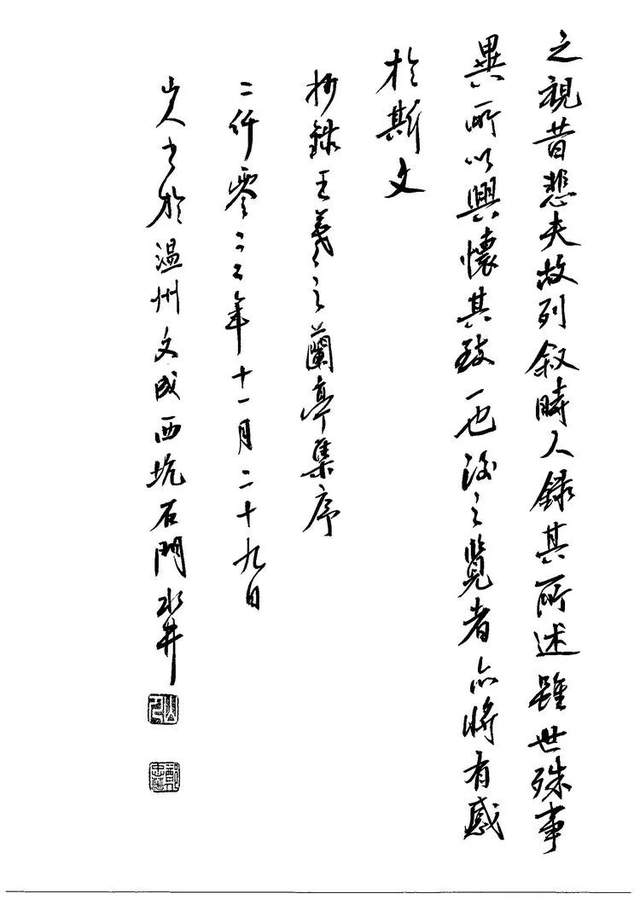 之視昔悲夫故列叙時人録其所述雖世殊事
異所以興懷其致一也後之覧者亦將有感
於斯文
抄録王羲之蘭亭集序
二仟零二二年十一月二十九日
山人书於温州文成西坑石門水井